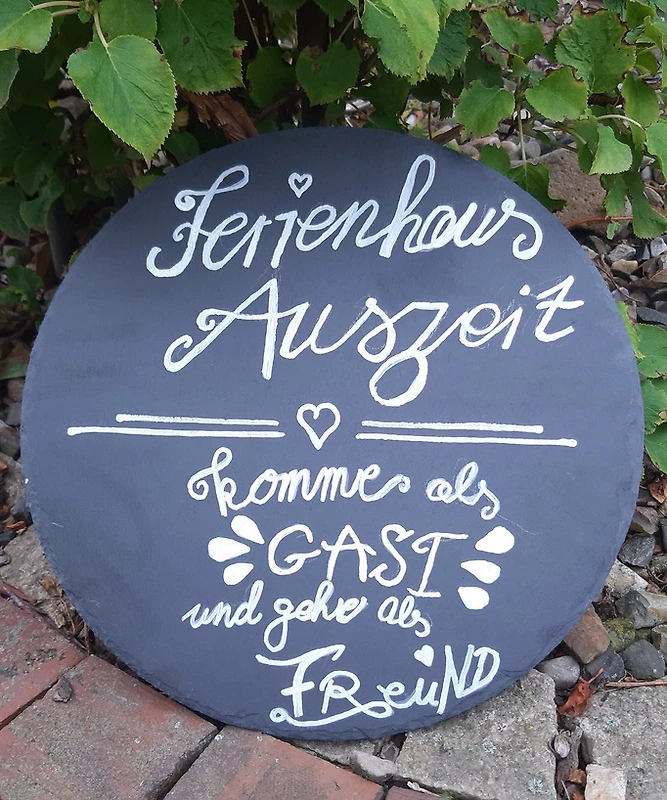 Ferienhaus
Auszeit
komme als
GAST
und gehe als
FReuND